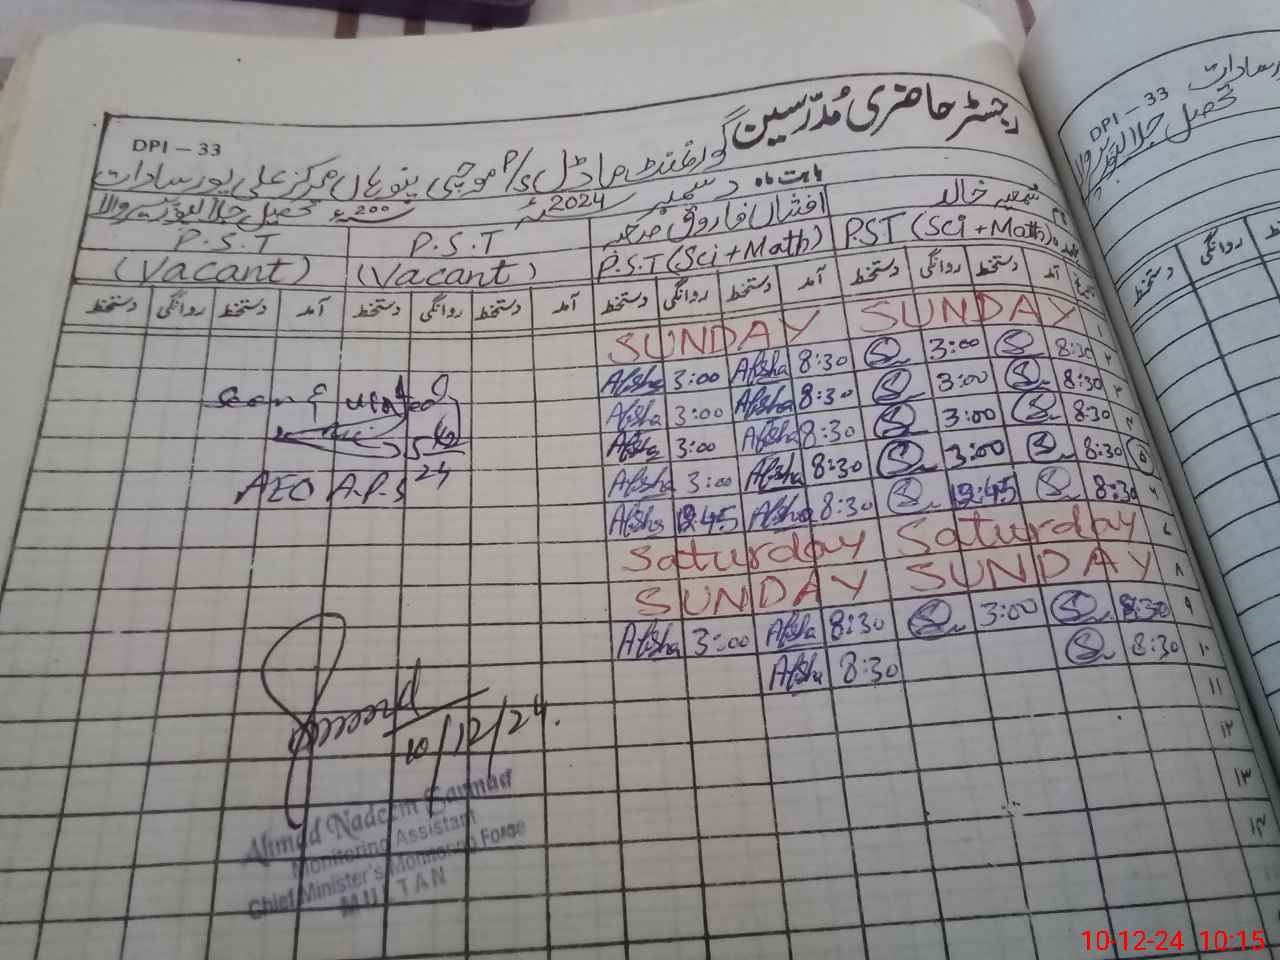 رجسٹر حاضری مُدرّسین
DPI - 33
گورنمنٹ ماڈل P/S موچی پنوہاں مرکز علی پور سادات
بابت ماہ دسمبر 2024 200 تحصیل جلالپور پیروالا
خالد افشاں فاروق P.S.T P.S.T
PST (Sci + Math) P.S.T (Sci + Math) (Vacant) (Vacant)
آمد دستخط روانگی دستخط آمد دستخط روانگی دستخط آمد دستخط روانگی دستخط آمد دستخط روانگی دستخط
۱ SUNDAY SUNDAY
۲ 8:30 3:00 8:30 Afsha 3:00 Afsha
۳ 8:30 3:00 8:30 Afsha 3:00 Afsha
۴ 8:30 3:00 8:30 Afsha 3:00 Afsha
۵ 8:30 3:00 8:30 Afsha 3:00 Afsha
۶ 8:30 12:45 8:30 Afsha 12:45 Afsha
۷ Saturday Saturday
۸ SUNDAY SUNDAY
۹ 8:30 3:00 8:30 Afsha 3:00 Afsha
۱۰ 8:30 8:30 Afsha
۱۱
۱۲
۱۳
۱۴
24
AEO A.P.S
10/12/24.
Ahmad Nadeem
Monitoring Assistant
Chief Minister's Monitoring Force
MULTAN
DPI - 33
سادات
تحصیل جلالپور پیروالا
روانگی دستخط
10-12-24 10:15